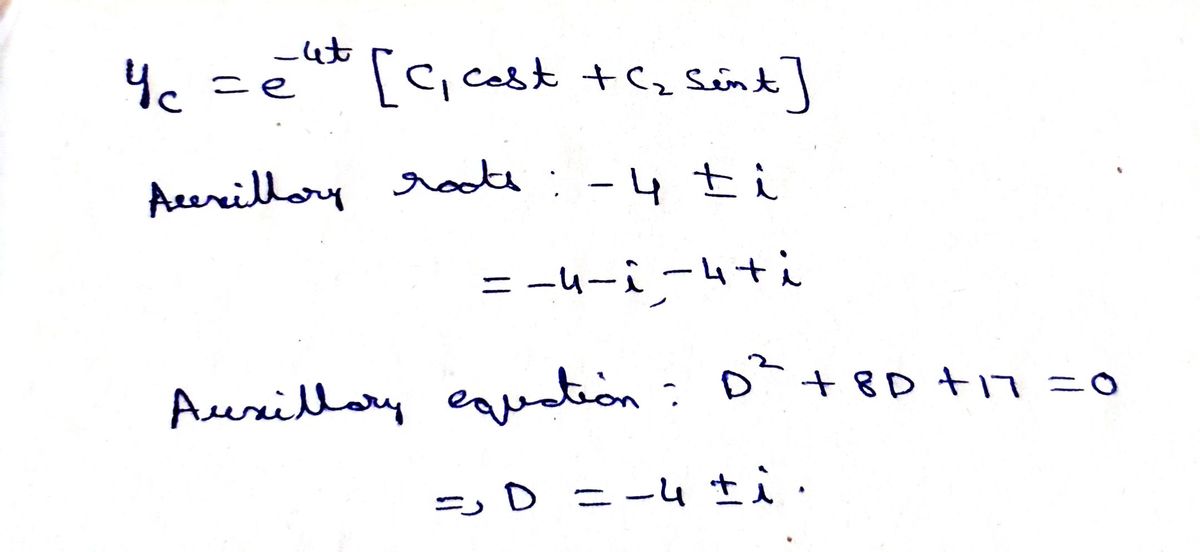 y_c = e^{-4t} [C_1 cost + C_2 sint]
Auxillary roots : -4 ± i
= -4-i, -4+i
Auxillary equation : D^2 + 8D + 17 = 0
=> D = -4 ± i.